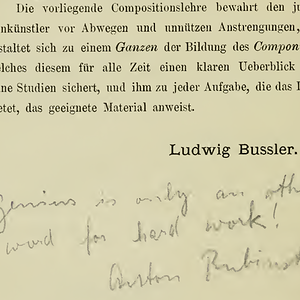 Die vorliegende Compositionslehre bewahrt den ju
nkünstler vor Abwegen und unnützen Anstrengungen,
staltet sich zu einem Ganzen der Bildung des Compon
elches diesem für alle Zeit einen klaren Ueberblick
ne Studien sichert, und ihm zu jeder Aufgabe, die das L
etet, das geeignete Material anweist.
Ludwig Bussler.
Genius is only an oth
word for hard work!
Anton Rubinst